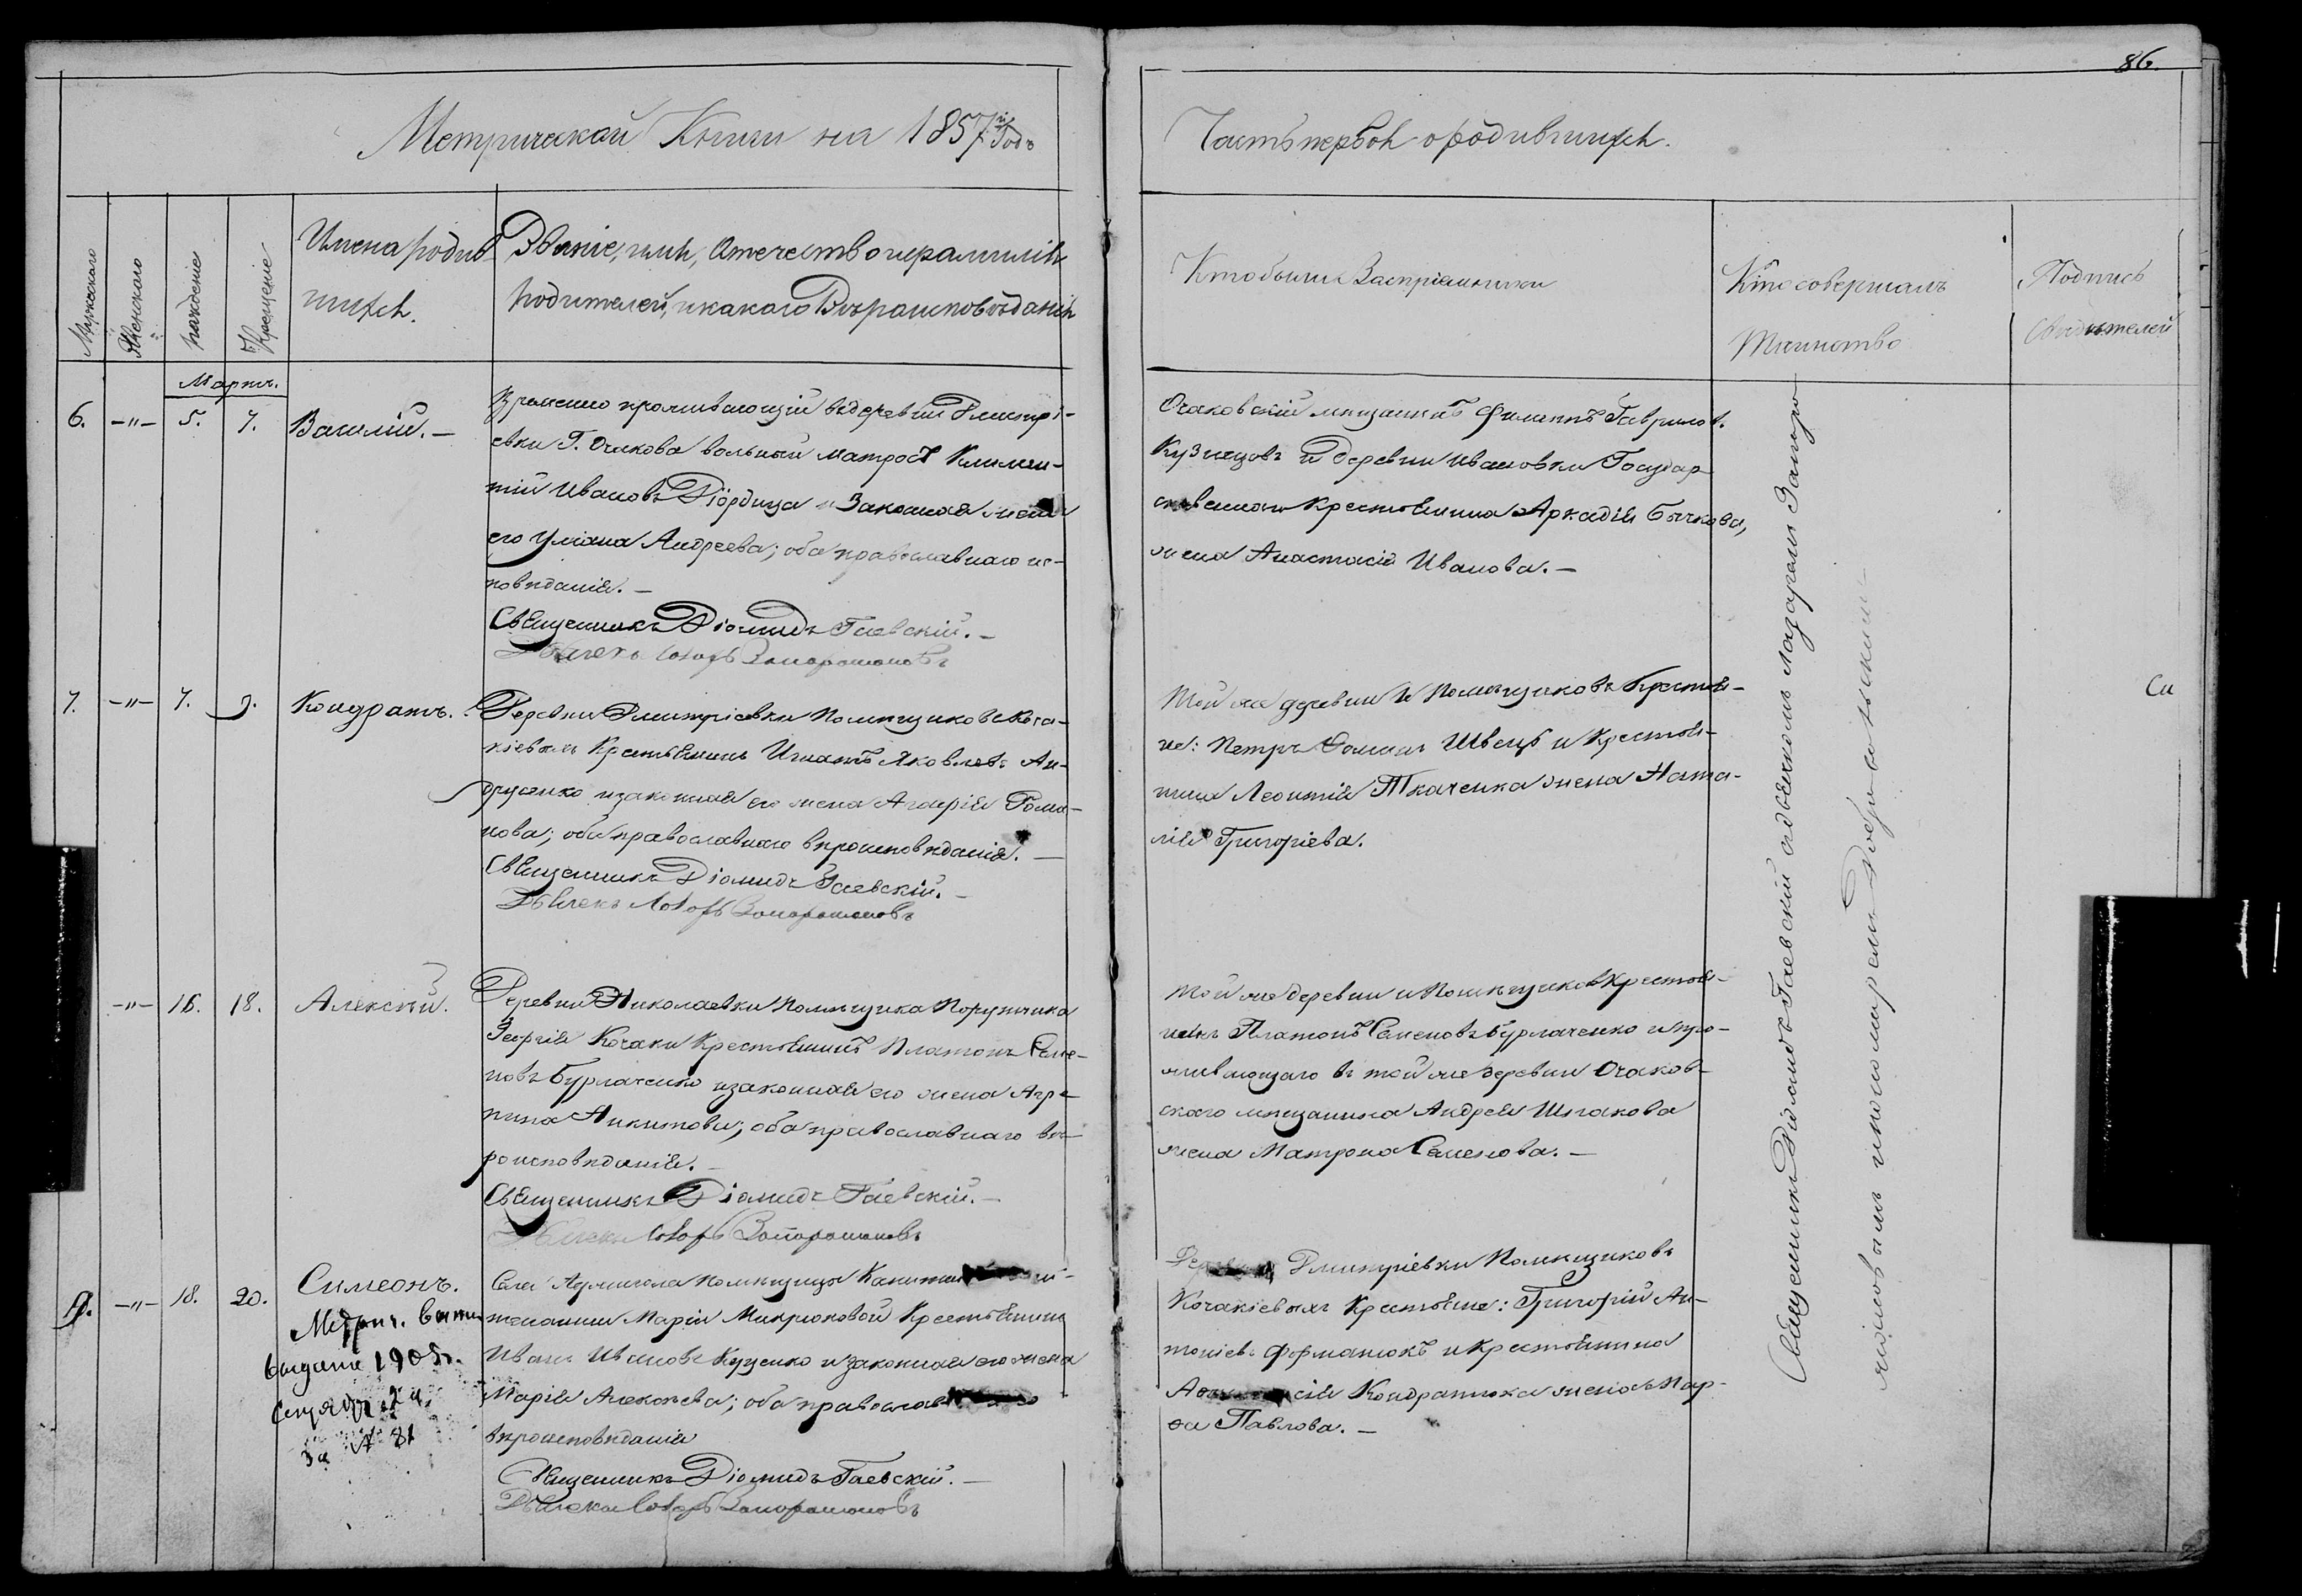 86.
Метрической Книги на 1857й Годъ
Часть первая о родившихся.
Мужескаго
Женскаго
рожденіе
Крещеніе
Имена родив
шихся.
Званіе, имя, Отечество и фамилія
родителей, и какого Вѣроисповѣданія
Кто были Воспріемники
Кто совершалъ
Таинство
Подпись
Свидѣтелей
Мартъ.
6. -"- 5. 7. Василій. —
Временно проживающій въ деревни Дмитрі-
евки Г. Очакова вольный матросъ Климен-
тій Ивановъ Діордица и Законная жена
его Уліана Андреева; оба православнаго ис-
повѣданія. —
Священникъ Діомидъ Гаевскій. —
Дьячекъ
Очаковскій мещанинъ Филиппъ Гаврилов.
Кузнецовъ и деревни Ивановки Государ-
ственнаго крестьянина Аркадія Бычкова,
жена Анастасія Иванова. —
7. -"- 7. 9. Кондратъ.
Деревни Дмитріевки помѣщиковъ Кога-
кіевыхъ Крестьянинъ Игнатъ Яковлевъ Ан-
друсенко и законная его жена Агафія Рома-
нова; оба православнаго вѣроисповѣданія. —
Священникъ Діомидъ Гаевскій. —
Дьячекъ
Той же деревни и помѣщиковъ Крестья-
не: Петръ Фоминъ Швецъ и Крестья-
нина Леонтія Ткаченка жена Ната-
лія Григоріева.
Си
-"- 16. 18. Алексѣй.
Деревни Николаевки помѣщика Порутчика
Георгія Кочаки Крестьянинъ Платонъ Семе-
новъ Бурлаченко и законная его жена Агре-
пина Никитова; оба православнаго вѣ-
роисповѣданія. —
Священникъ Діомидъ Гаевскій. —
Дьячекъ
Той же деревни и помѣщиковъ Крестья-
нинъ Платонъ Семеновъ Бурлаченко и про-
живающаго въ той же деревни Очаков-
скаго мещанина Андрея Шпакова
жена Матрона Семенова. —
-"- 18. 20. Симеонъ.
Метрич. выпи
выдана 1905г.
за № 81
Села помѣщицы
Маріи Микрюковой Крестьянинъ
Иванъ Ивановъ Куценко и законная его жена
Марія Алексѣева; оба православнаго
вѣроисповѣданія
Священникъ Діомидъ Гаевскій. —
Дьячекъ
Деревни Дмитріевки Помѣщиковъ
Кочакіевыхъ Крестьяне: Григорій Ан-
тоніевъ Форманюкъ и крестьянина
Кондратюка жена Мар-
ѳа Павлова. —
Священникъ Діомидъ Гаевскій съ дьячкомъ Лазаремъ Запоро
жановымъ и пономаремъ